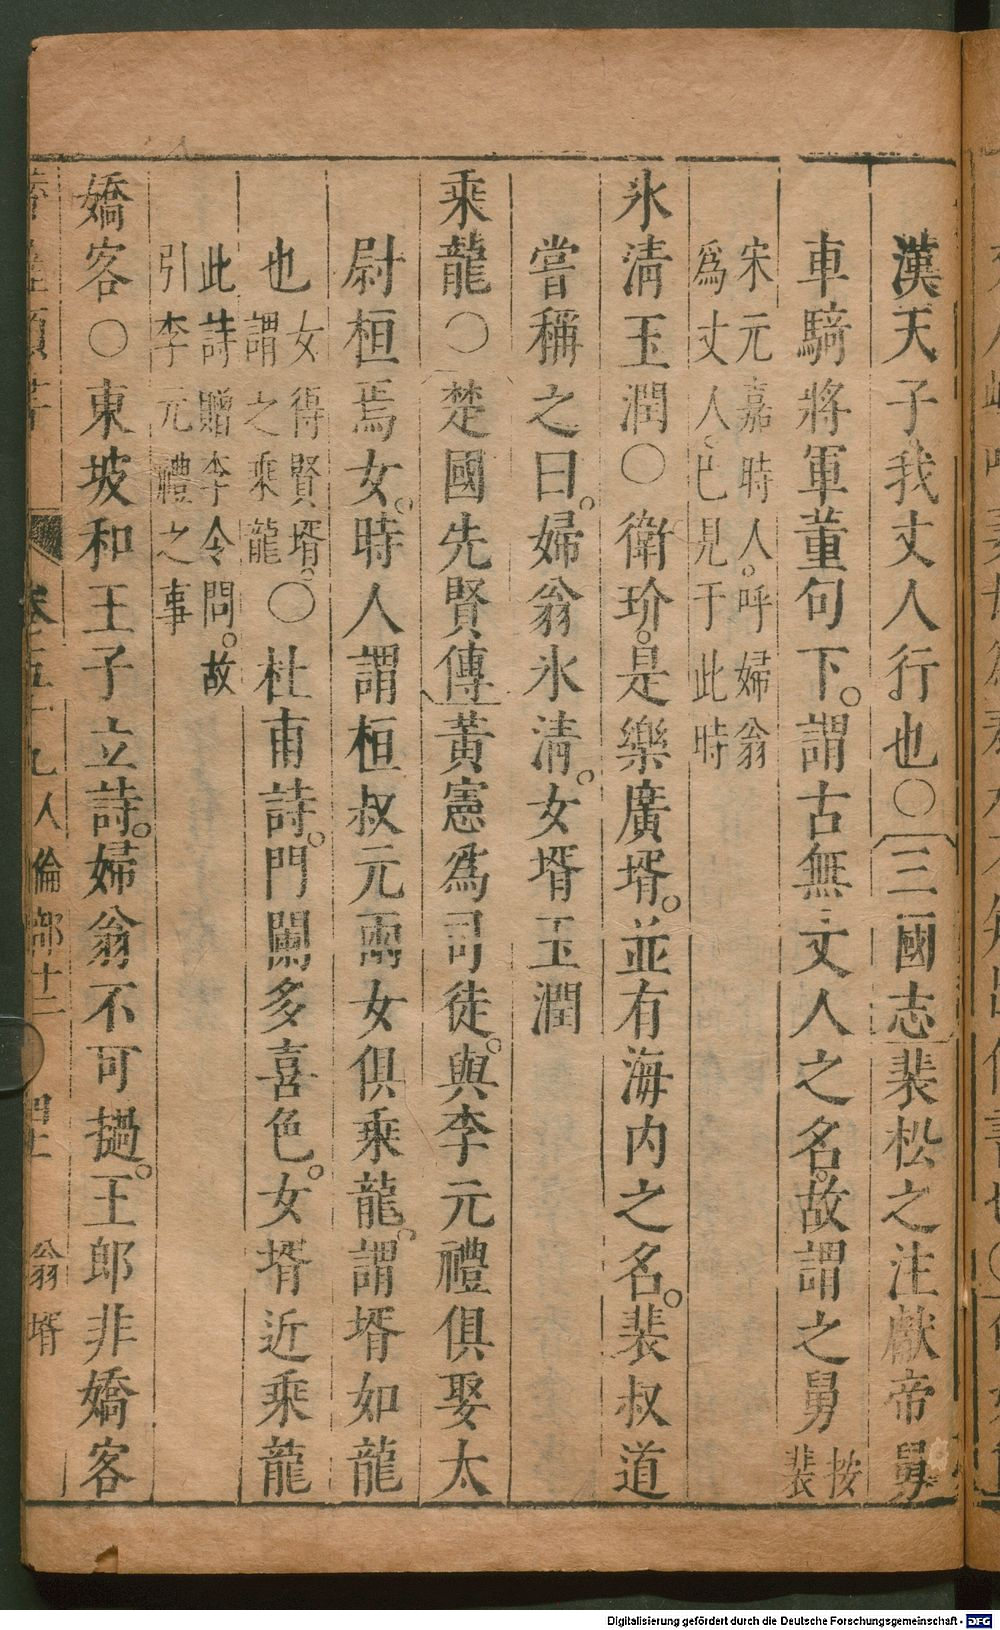 漢天子我丈人行也○三國志裴松之注獻帝舅
車騎將軍董句下。謂古無丈人之名。故謂之舅按裴
宋元嘉時人。呼婦翁
爲丈人、已見于此時
氷清玉潤○衛玠。是樂廣壻。並有海內之名。裴叔道
嘗稱之曰。婦翁氷清。女壻玉潤
乘龍○楚國先賢傳黃憲爲司徒。與李元禮俱娶太
尉桓焉女。時人謂桓叔元兩女俱乘龍。謂壻如龍
也女得賢壻。謂之乘龍○杜甫詩。門闌多喜色。女壻近乘龍
此詩贈李令問。故
引李元禮之事
嬌客○東坡和王子立詩。婦翁不可撾。王郎非嬌客
卷五十九人倫部十二 翁壻
Digitalisierung gefördert durch die Deutsche Forschungsgemeinschaft - DFG